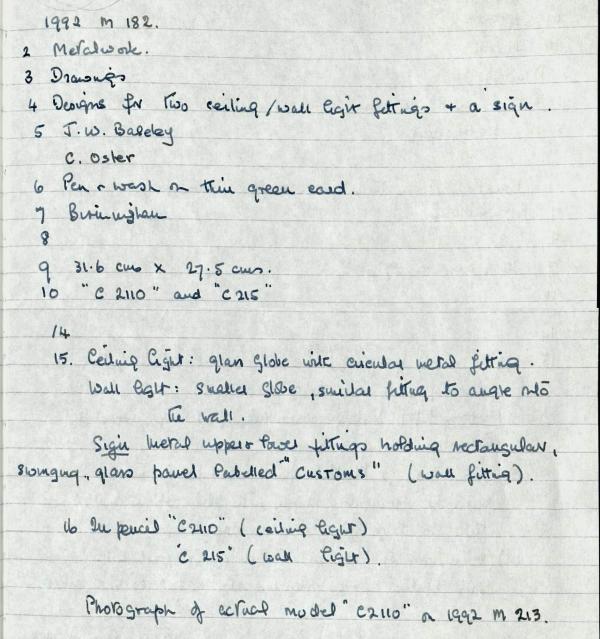 1992 M 182.
2 Metalwork.
3 Drawings
4 Designs for two ceiling/wall light fittings + a sign.
5 J.W. Baseley
C. Osler
6 Pen & wash on thin green card.
7 Birmingham
8
9 31.6 cms x 27.5 cms.
10 "C 2110" and "C 215"
14
15. Ceiling light: glass globe with circular metal fitting.
Wall light: smaller globe, similar fitting to angle into
the wall.
Sign metal upper & lower fittings holding rectangular,
swinging, glass panel labelled "CUSTOMS" (wall fitting).
16 In pencil "C2110" (ceiling light)
"C 215" (wall light).
Photograph of actual model "C2110" on 1992 M 213.